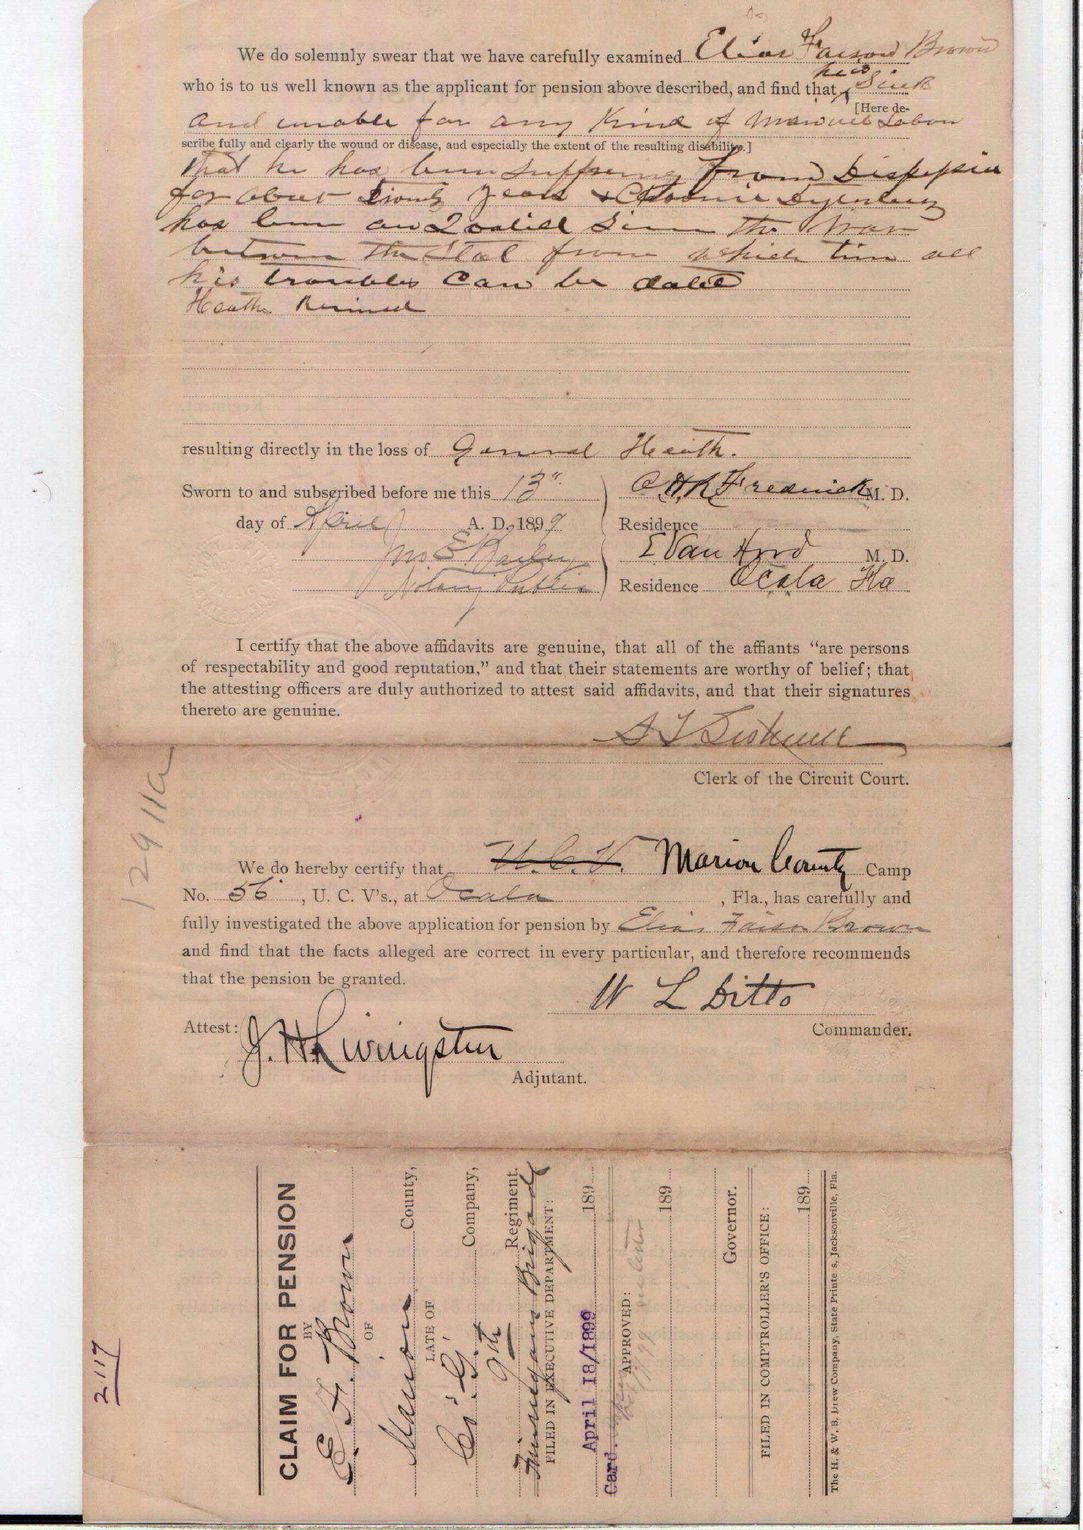 We do solemnly swear that we have carefully examined Elias Faison Brown
who is to us well known as the applicant for pension above described, and find that he is Sick
[Here de-
and unable for any Kind of Manuel Labor
scribe fully and clearly the wound or disease, and especially the extent of the resulting disability.]
that he has been suffering from Dispepsia
for about years & Chronic
has been an Invalid Since the War
between the Stat from which tim all
his troubles can be dated
Health Ruined
resulting directly in the loss of General Health.
Sworn to and subscribed before me this 13"
day of April A. D. 1899
Jno E Bailey
Notary Public
Frederick M. D.
Residence
E Van Hood M. D.
Residence Ocala Fla
I certify that the above affidavits are genuine, that all of the affiants "are persons
of respectability and good reputation," and that their statements are worthy of belief; that
the attesting officers are duly authorized to attest said affidavits, and that their signatures
thereto are genuine.
S T Sistrunk
Clerk of the Circuit Court.
12911a
We do hereby certify that U. C. V. Marion County Camp
No. 56, U. C. V's., at Ocala, Fla., has carefully and
fully investigated the above application for pension by Elias Faison Brown
and find that the facts alleged are correct in every particular, and therefore recommends
that the pension be granted.
W L Ditto
Commander.
Attest: J. H. Livingston
Adjutant.
2117
CLAIM FOR PENSION
BY
E. F. Brown
OF
Marion County,
LATE OF
Co. "G" Company,
9th Regiment.
Finnegans Brigade
FILED IN EXECUTIVE DEPARTMENT:
April 18/1899 189
Card.
APPROVED:
189
Governor.
FILED IN COMPTROLLER'S OFFICE:
189
The H. & W. B. Drew Company, State Printers, Jacksonville, Fla.